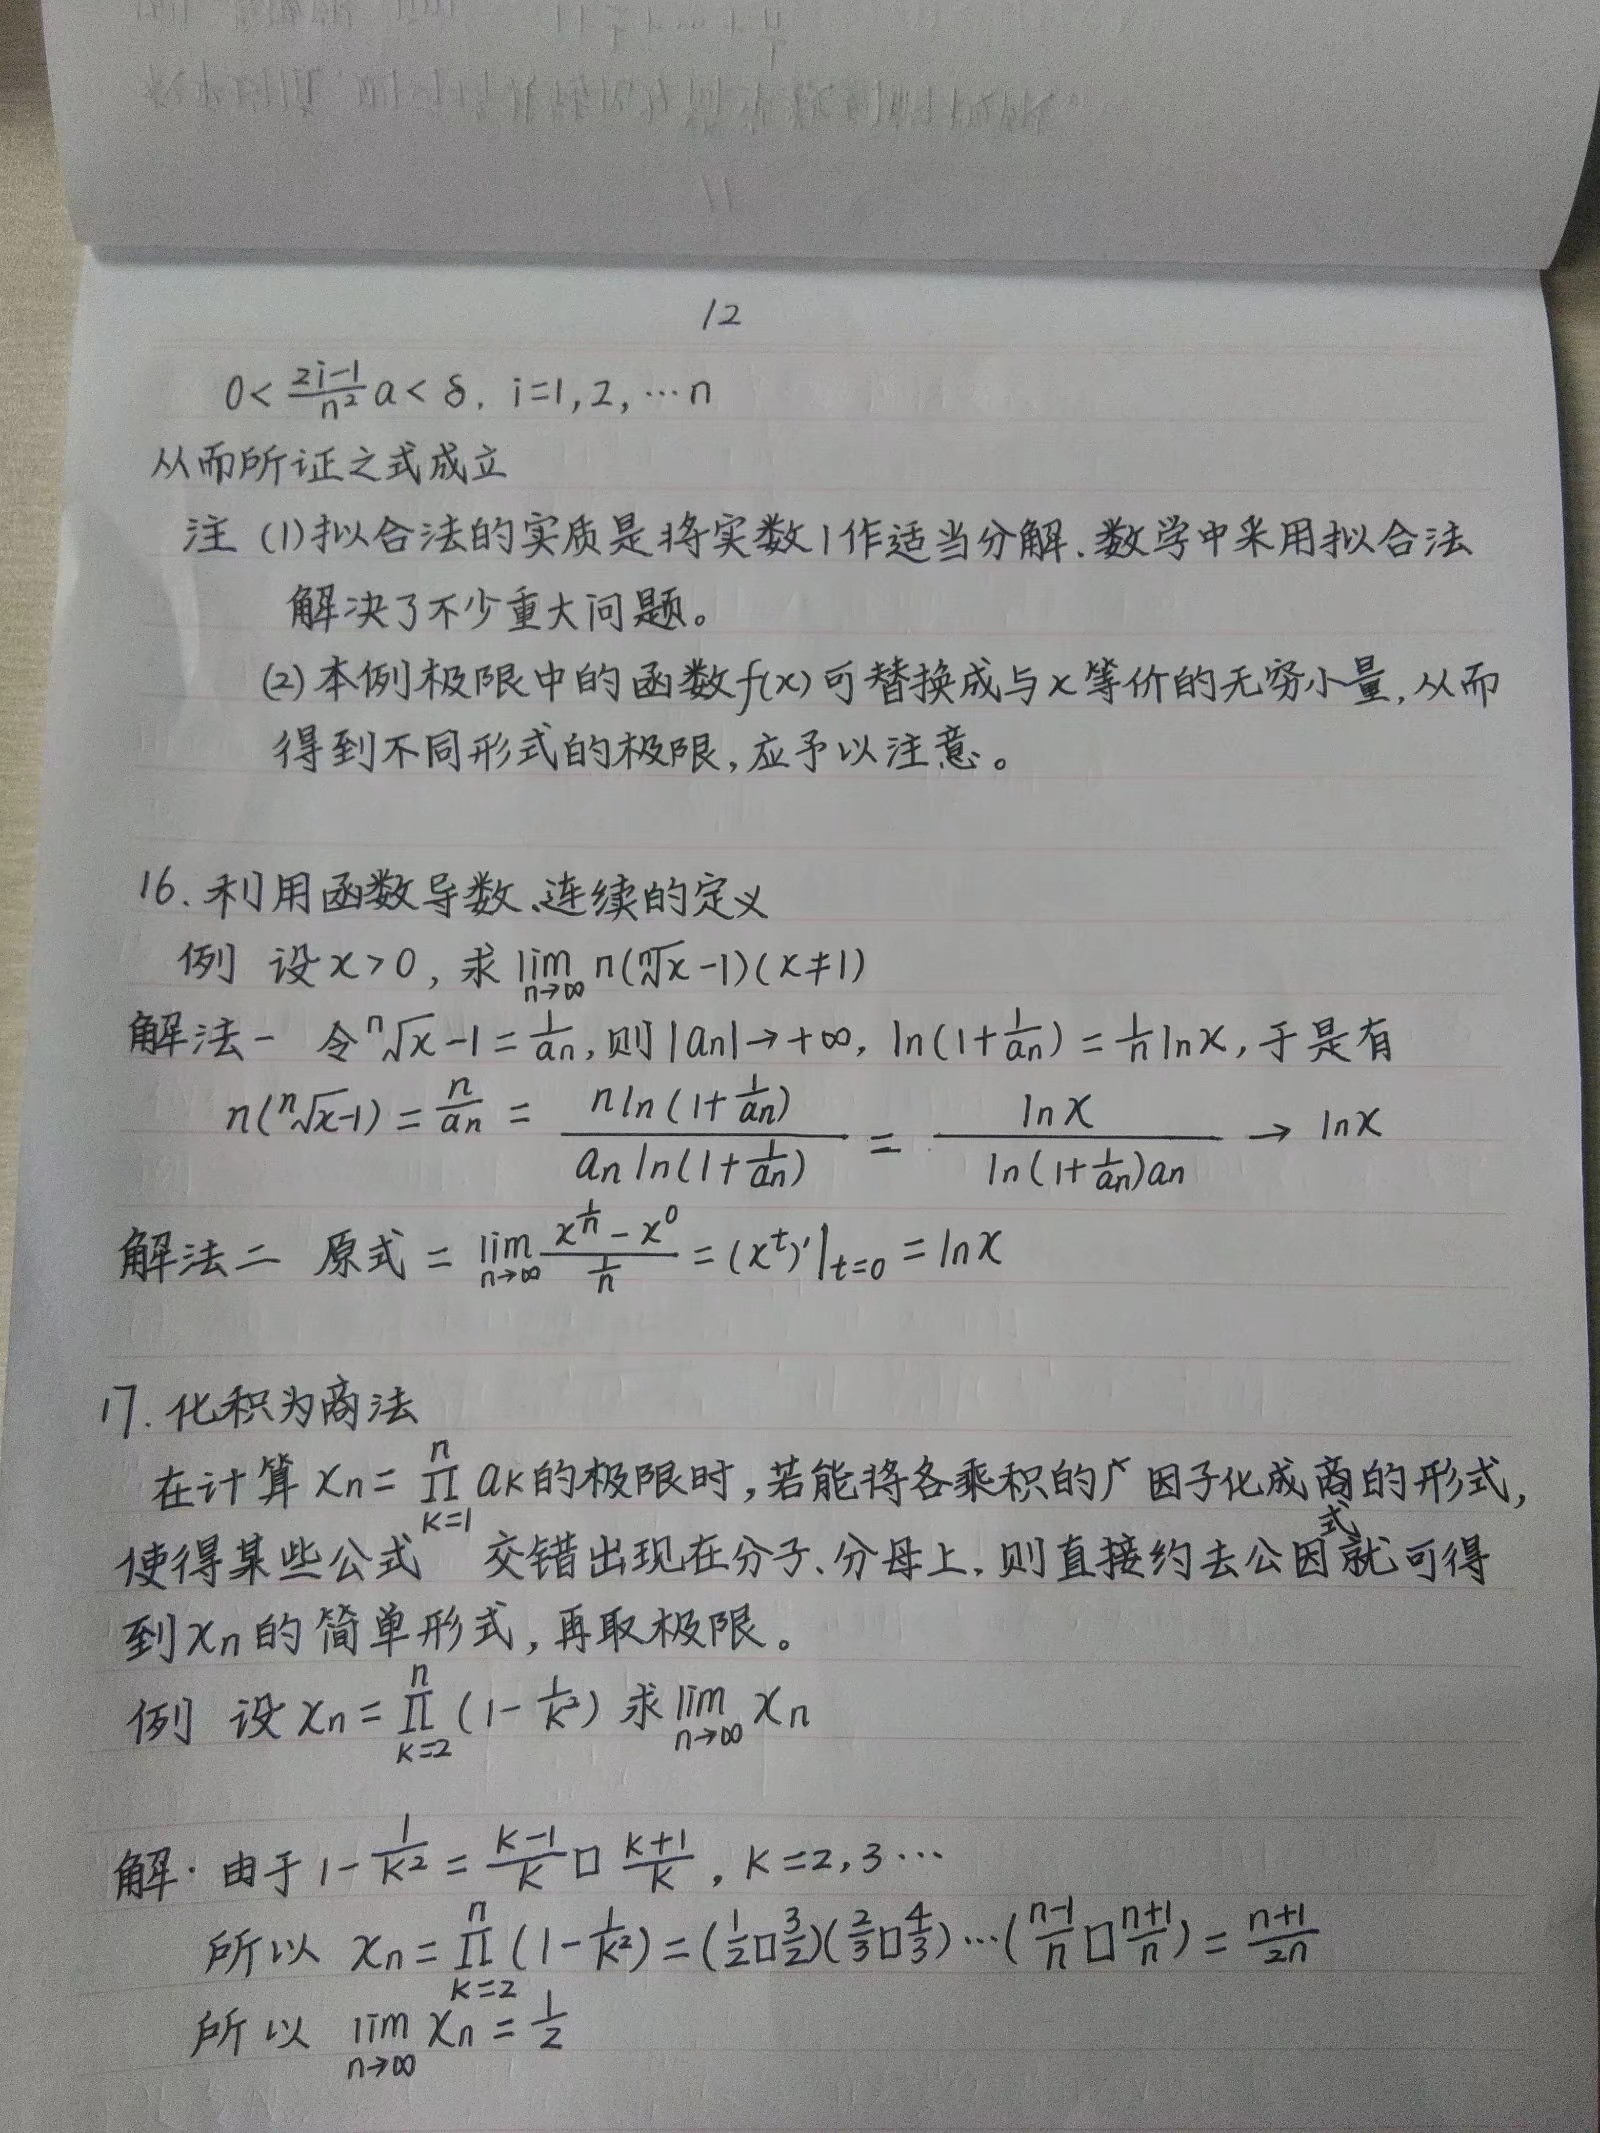 12
0<\frac{2i-1}{n^2}a<δ. i=1,2,…n
从而所证之式成立
注 (1)拟合法的实质是将实数1作适当分解.数学中采用拟合法
解决了不少重大问题。
(2)本例极限中的函数f(x)可替换成与x等价的无穷小量,从而
得到不同形式的极限,应予以注意。
16.利用函数导数、连续的定义
例 设x>0,求\lim_{n→∞}n(\sqrt[n]{x}-1)(x≠1)
解法一 令\sqrt[n]{x}-1=\frac{1}{a_n},则|a_n|→+∞, ln(1+\frac{1}{a_n})=\frac{1}{n}lnx,于是有
n(\sqrt[n]{x}-1)=\frac{n}{a_n}=\frac{nln(1+\frac{1}{a_n})}{a_nln(1+\frac{1}{a_n})}=\frac{lnx}{ln(1+\frac{1}{a_n})a_n}→lnx
解法二 原式=\lim_{n→∞}\frac{x^{\frac{1}{n}}-x^0}{\frac{1}{n}}=(x^t)'|_{t=0}=lnx
17.化积为商法
在计算x_n=\prod_{k=1}^{n}a_k的极限时,若能将各乘积的广因子化成商的形式,
使得某些公式 交错出现在分子、分母上,则直接约去公因式就可得
到x_n的简单形式,再取极限。
例 设x_n=\prod_{k=2}^{n}(1-\frac{1}{k^2})求\lim_{n→∞}x_n
解.由于1-\frac{1}{k^2}=\frac{k-1}{k}□\frac{k+1}{k},k=2,3…
所以 x_n=\prod_{k=2}^{n}(1-\frac{1}{k^2})=(\frac{1}{2}□\frac{3}{2})(\frac{2}{3}□\frac{4}{3})…(\frac{n-1}{n}□\frac{n+1}{n})=\frac{n+1}{2n}
所以 \lim_{n→∞}x_n=\frac{1}{2}